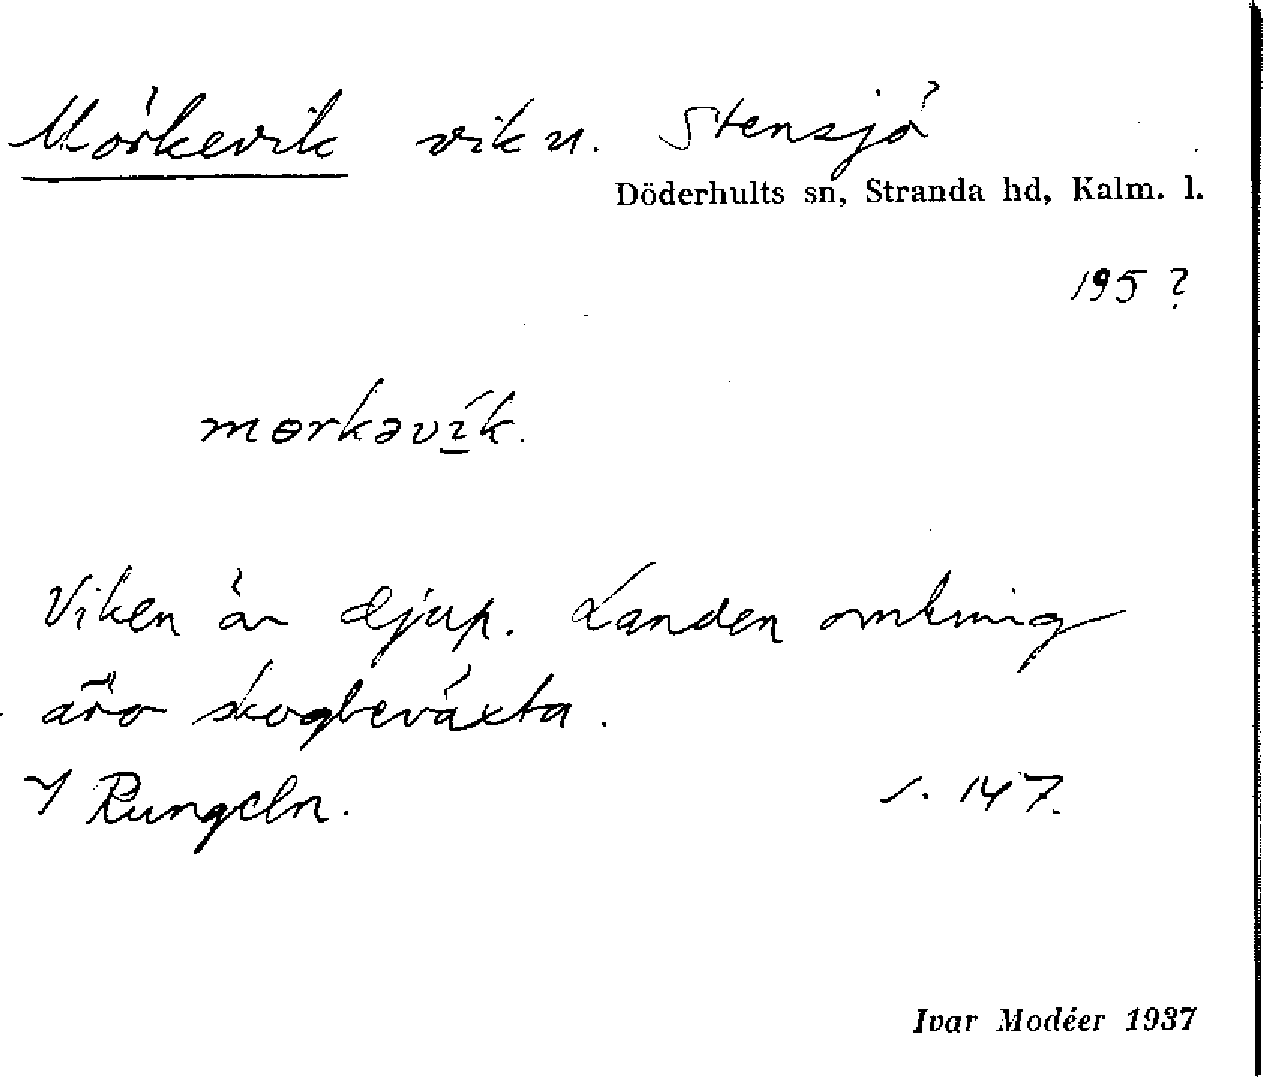 Mörkevik vik u. Stensjö
Döderhults sn, Stranda hd, Kalm. l.
195 ?
mɵrkəvík.
Viken är djup. Landen omkring
äro skogbeväxta.
I Rungeln. s. 147.
Ivar Modéer 1937